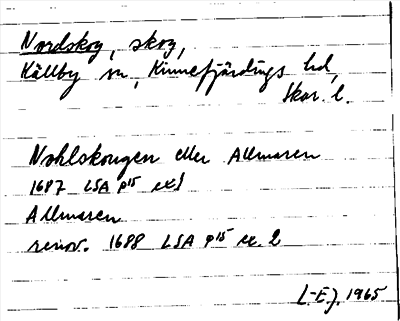 Nordskog, skog,
Källby sn, Kinnefjärdings hd,
Skar. l.
Nohlskougen eller Allmaren
1687 LSA P15 ex1
Allmaren
renov. 1688 LSA P15 ex. 2
L-E.J. 1965